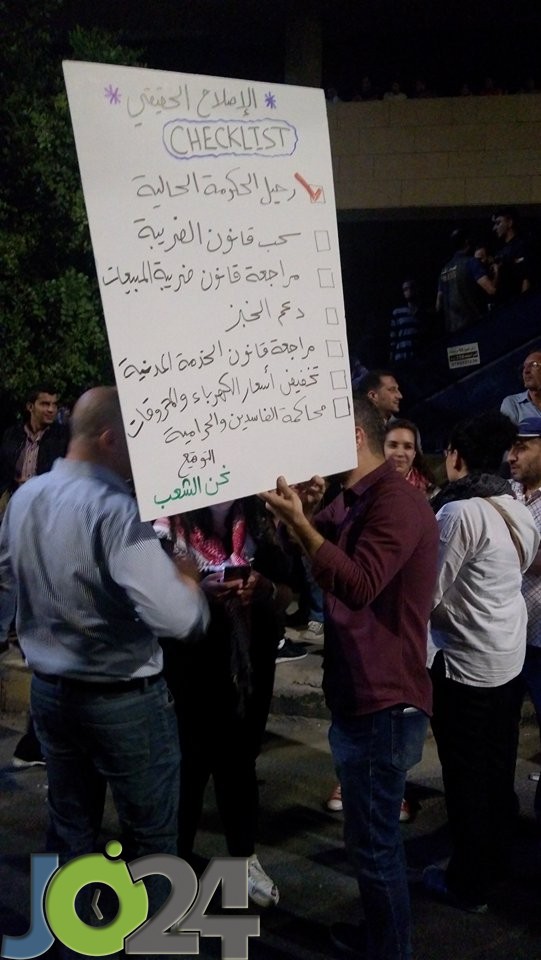 * الإصلاح الحقيقي *
CHECKLIST
رحيل الحكومة الحالية
سحب قانون الضريبة
مراجعة قانون ضريبة المبيعات
دعم الخبز
مراجعة قانون الخدمة المدنية
تخفيض أسعار الكهرباء والمحروقات
محاكمة الفاسدين والحرامية
التوقيع
نحن الشعب
JO24